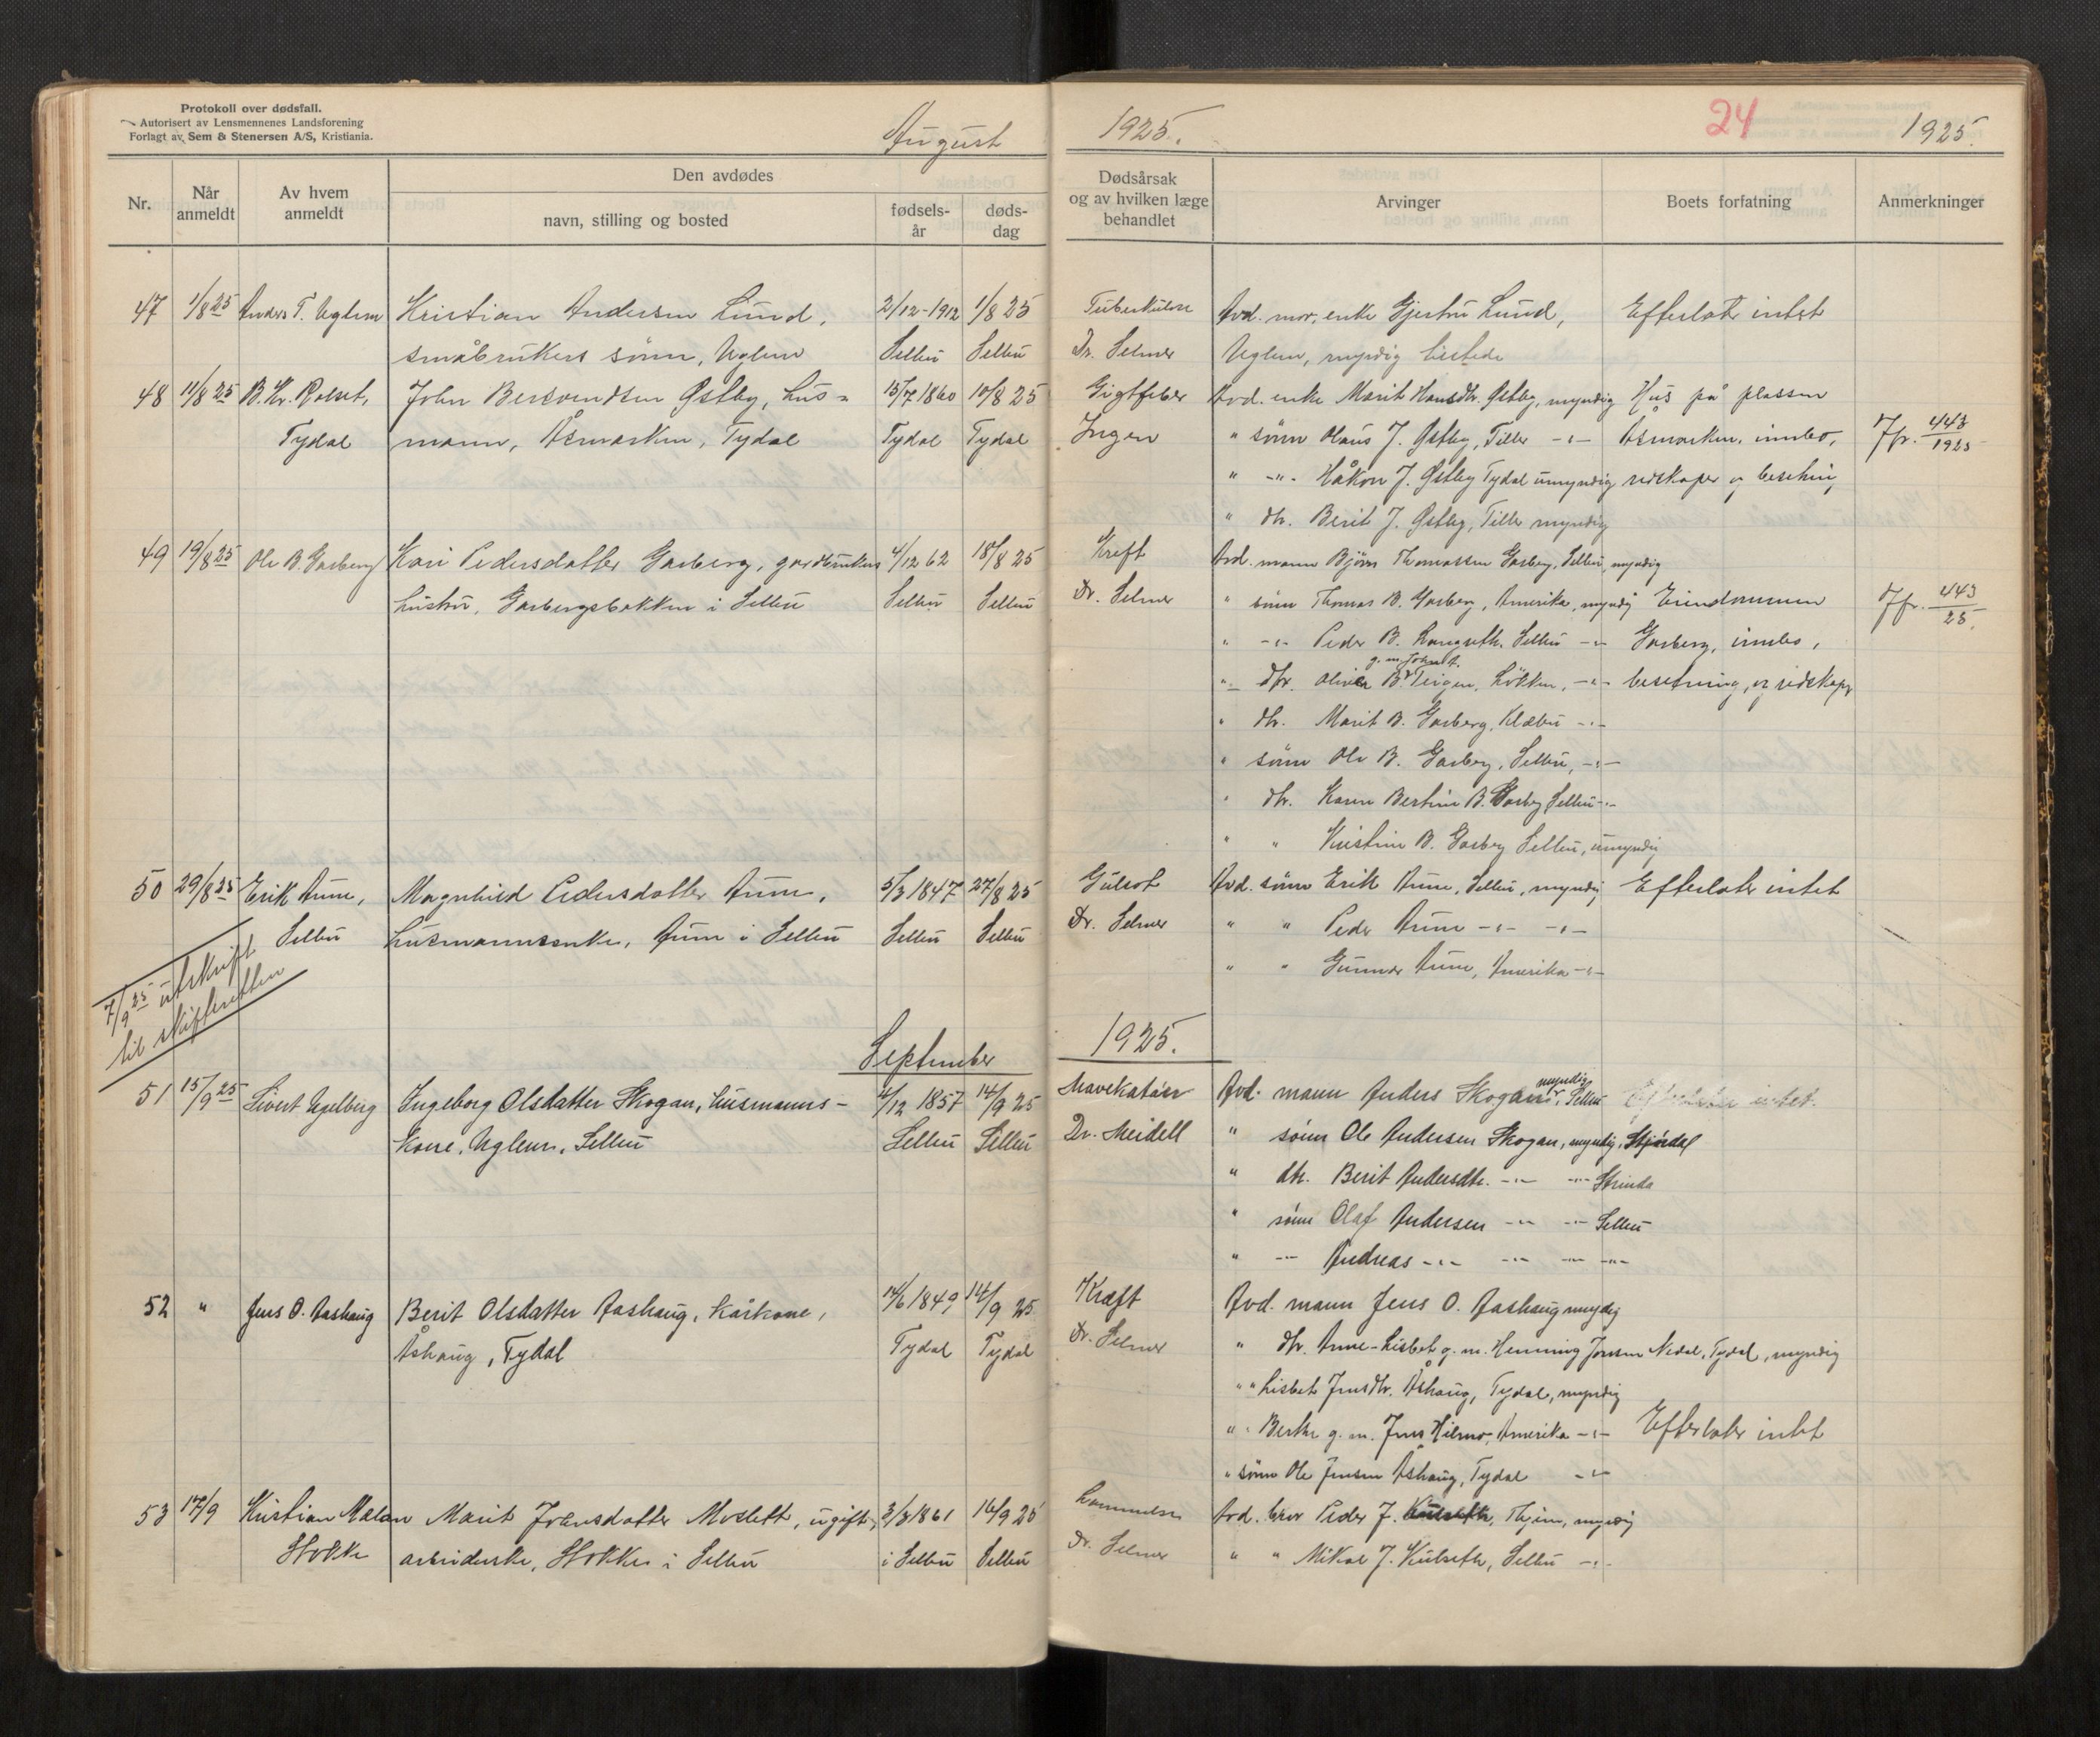 Protokoll over dødsfall.
Autorisert av Lensmennenes Landsforening
Forlagt av Sem & Stenersen A/S, Kristiania.
August
Nr.
Når anmeldt
Av hvem anmeldt
Den avdødes
navn, stilling og bosted
fødsels-år
døds-dag
47 1/8 25 Anders T. Uglem Kristian Andersen Lund, 2/12-1912 1/8 25
småbrukers sönn, Uglem Selbu Selbu
48 11/8 25 B. Kr. Rolset, John Bersvendsen Østby, hus- 15/7 1860 10/8 25
Tydal mann, Åsmarken, Tydal Tydal Tydal
49 19/8 25 Ole B. Garberg Kari Pedersdatter Garberg, gardbrukers 4/12 62 18/8 25
hustru, Garbergsbakken i Selbu Selbu Selbu
50 29/8 25 Erik Aune, Magnhild Pedersdatter Aune, 5/3 1847 27/8 25
Selbu husmannsenke, Aune i Selbu Selbu Selbu
7/9 25 utskrift
til skifteretten
September
51 15/9 25 Sivert Uglberg Ingeborg Olsdatter Skogan, husmanns- 4/12 1857 14/9 25
kone, Uglem, Selbu Selbu Selbu
52 " Jens O. Aashaug Berit Olsdatter Aashaug, kårkone, 14/6 1849, 14/9 25
Åshaug, Tydal Tydal Tydal
53 17/9 Kristian Marit Johnsdatter Moslett, ugift, 3/3 1861 16/9 25
Stokke arbeiderske, Stokke i Selbu i Selbu Selbu
1925.
24
1925.
Dødsårsak og av hvilken læge behandlet
Arvinger
Boets forfatning
Anmerkninger
Tuberkulose Avd. mor, enke Gjertru Lund, Efterlater intet
Dr. Selmer Uglem, myndig
Gigtfeber Avd. enke Marit Hansdtr. Østby, myndig Hus på plassen
Ingen " sönn Olaus J. Østby, Tiller -"- Åsmarken, innbo, Jfr. 443/1925
" -"- Håkon J. Østby Tydal umyndig redskaper og
" dtr. Berit J. Østby, Tiller myndig
Kreft Avd. mann Bjørn Thomassen Garberg, Selbu, myndig
Dr. Selmer " sönn Thomas B. Garberg, Amerika, myndig Eiendommen Jfr. 443/25.
" -"- Peder B. Langseth, Selbu -"- Garberg, innbo,
g. m. John A.
" dtr. B. Teigen, Løkken, -"- besetning, og redskaper
" dtr. Marit B. Garberg, Klæbu -"-
" sönn Ole B. Garberg, Selbu, -"-
" dtr. Karen Bertine B. Garberg Selbu -"-
" " Kristine B. Garberg Selbu, umyndig
Gulsot Avd. sönn Erik Aune, Selbu, myndig Efterlater intet
Dr. Selmer " " Peder Aune -"- -"-
" " Gunnar Aune, Amerika -"-
1925.
Mavekatarr Avd. mann Anders Skogan, myndig, Selbu Efterlater intet.
Dr. Meidell " sönn Ole Andersen Skogan, myndig, Stjørdal
" dtr. Berit Andersdtr. -"- -"- Strinda
" sönn Olaf Andersen -"- -"- Selbu
" -"- Andreas -"- -"- -"- -"-
Kræft Avd. mann Jens O. Aashaug myndig
Dr. Selmer " dtr. Anne-Lisbet g. m. Henning Jonsen Nedal, Tydal, myndig
" " Lisbet Jensdtr. Åshaug, Tydal, myndig
" " Berthe g. m. Jens Hilmo, Amerika -"- Efterlater intet
" sönn Ole Jensen Åshaug, Tydal -"-
Lammelse Avd. bror Peder J. Kulseth, myndig
Dr. Selmer " " Mikal J. Kulseth, Selbu -"-